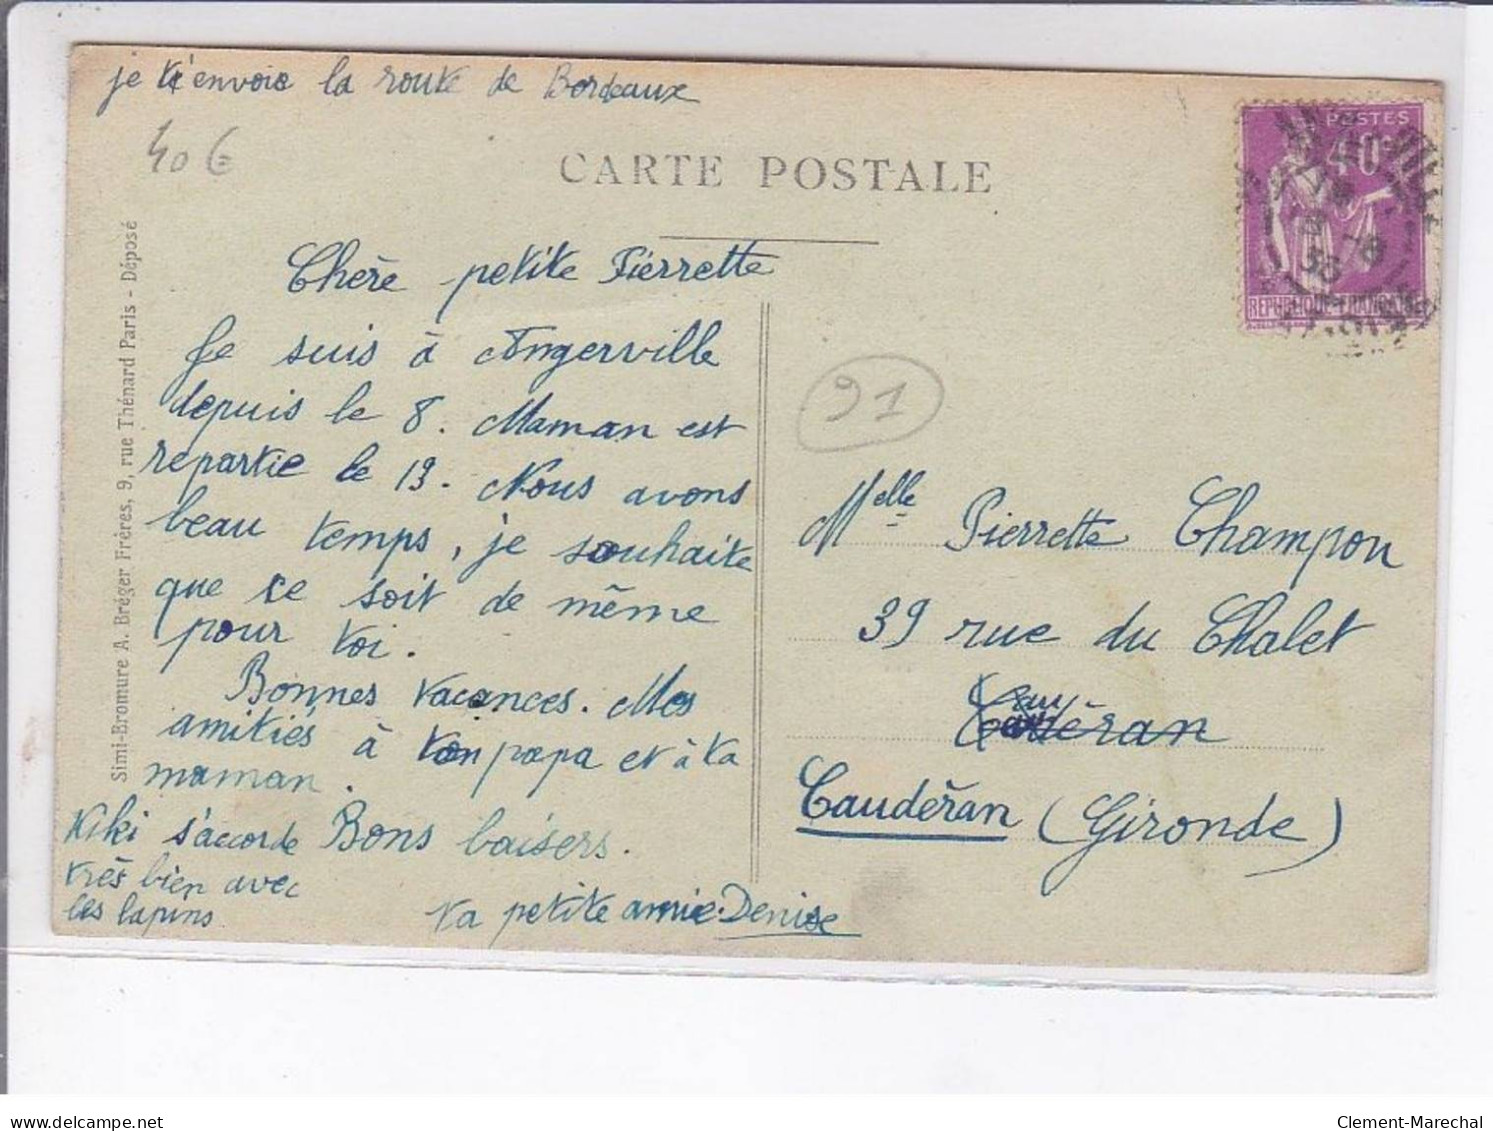 je t'envoie la route de Bordeaux
40 €
CARTE POSTALE
POSTES
40c
RÉPUBLIQUE FRANÇAISE
Simi-Bromure A. Bréger Frères, 9, rue Thénard Paris - Déposé
Chère petite Pierrette
Je suis à Angerville
depuis le 8. Maman est
repartie le 13. Nous avons
beau temps, je souhaite
que ce soit de même
pour toi.
Bonnes vacances. Mes
amitiés à ton papa et à ta
maman.
Kiki s'accorde
très bien avec
les lapins
Bons baisers.
ta petite amie. Denise
91
Melle Pierrette Champon
39 rue du Chalet
Caudéran (Gironde)
Clement-Marechal
www.delcampe.net